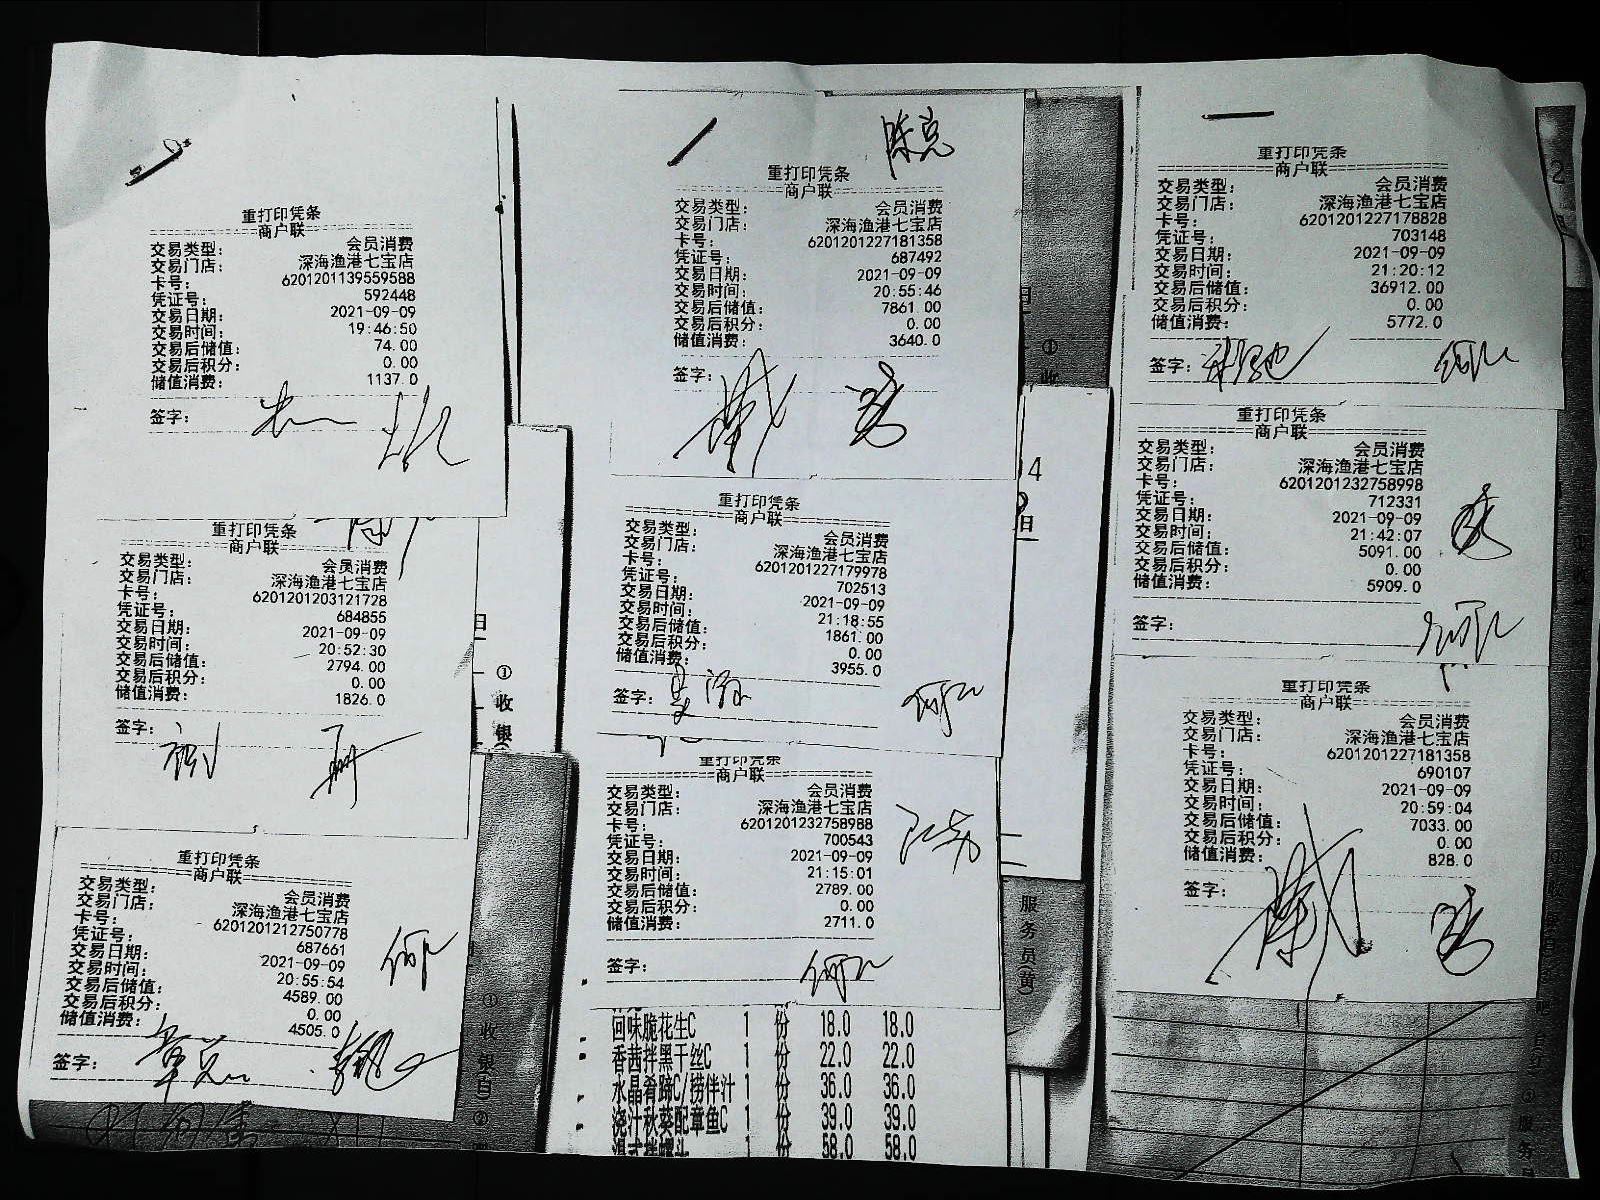 重打印凭条
商户联
交易类型: 会员消费
交易门店: 深海渔港七宝店
卡号: 6201201139559588
凭证号: 592448
交易日期: 2021-09-09
交易时间: 19:46:50
交易后储值: 74.00
交易后积分: 0.00
储值消费: 1137.0
签字:
重打印凭条
商户联
交易类型: 会员消费
交易门店: 深海渔港七宝店
卡号: 6201201203121728
凭证号: 684855
交易日期: 2021-09-09
交易时间: 20:52:30
交易后储值: 2794.00
交易后积分: 0.00
储值消费: 1826.0
签字:
重打印凭条
商户联
交易类型: 会员消费
交易门店: 深海渔港七宝店
卡号: 6201201212750778
凭证号: 687661
交易日期: 2021-09-09
交易时间: 20:55:54
交易后储值: 4589.00
交易后积分: 0.00
储值消费: 4505.0
签字:
日
①
收
银
①
收
银
(白)
②
重打印凭条
商户联
交易类型: 会员消费
交易门店: 深海渔港七宝店
卡号: 6201201227181358
凭证号: 687492
交易日期: 2021-09-09
交易时间: 20:55:46
交易后储值: 7861.00
交易后积分: 0.00
储值消费: 3640.0
签字:
重打印凭条
商户联
交易类型: 会员消费
交易门店: 深海渔港七宝店
卡号: 6201201227179978
凭证号: 702513
交易日期: 2021-09-09
交易时间: 21:18:55
交易后储值: 1861.00
交易后积分: 0.00
储值消费: 3955.0
签字:
重打印凭条
商户联
交易类型: 会员消费
交易门店: 深海渔港七宝店
卡号: 6201201232758988
凭证号: 700543
交易日期: 2021-09-09
交易时间: 21:15:01
交易后储值: 2789.00
交易后积分: 0.00
储值消费: 2711.0
签字:
回味脆花生C 1 份 18.0 18.0
香茜拌黑干丝C 1 份 22.0 22.0
水晶肴蹄C/捞伴汁 1 份 36.0 36.0
浇汁秋葵配章鱼C 1 份 39.0 39.0
1 份 58.0 58.0
①
收
日
服务员(黄)
重打印凭条
商户联
交易类型: 会员消费
交易门店: 深海渔港七宝店
卡号: 6201201227178828
凭证号: 703148
交易日期: 2021-09-09
交易时间: 21:20:12
交易后储值: 36912.00
交易后积分: 0.00
储值消费: 5772.0
签字:
重打印凭条
商户联
交易类型: 会员消费
交易门店: 深海渔港七宝店
卡号: 6201201232758998
凭证号: 712331
交易日期: 2021-09-09
交易时间: 21:42:07
交易后储值: 5091.00
交易后积分: 0.00
储值消费: 5909.0
签字:
重打印凭条
商户联
交易类型: 会员消费
交易门店: 深海渔港七宝店
卡号: 6201201227181358
凭证号: 690107
交易日期: 2021-09-09
交易时间: 20:59:04
交易后储值: 7033.00
交易后积分: 0.00
储值消费: 828.0
签字: